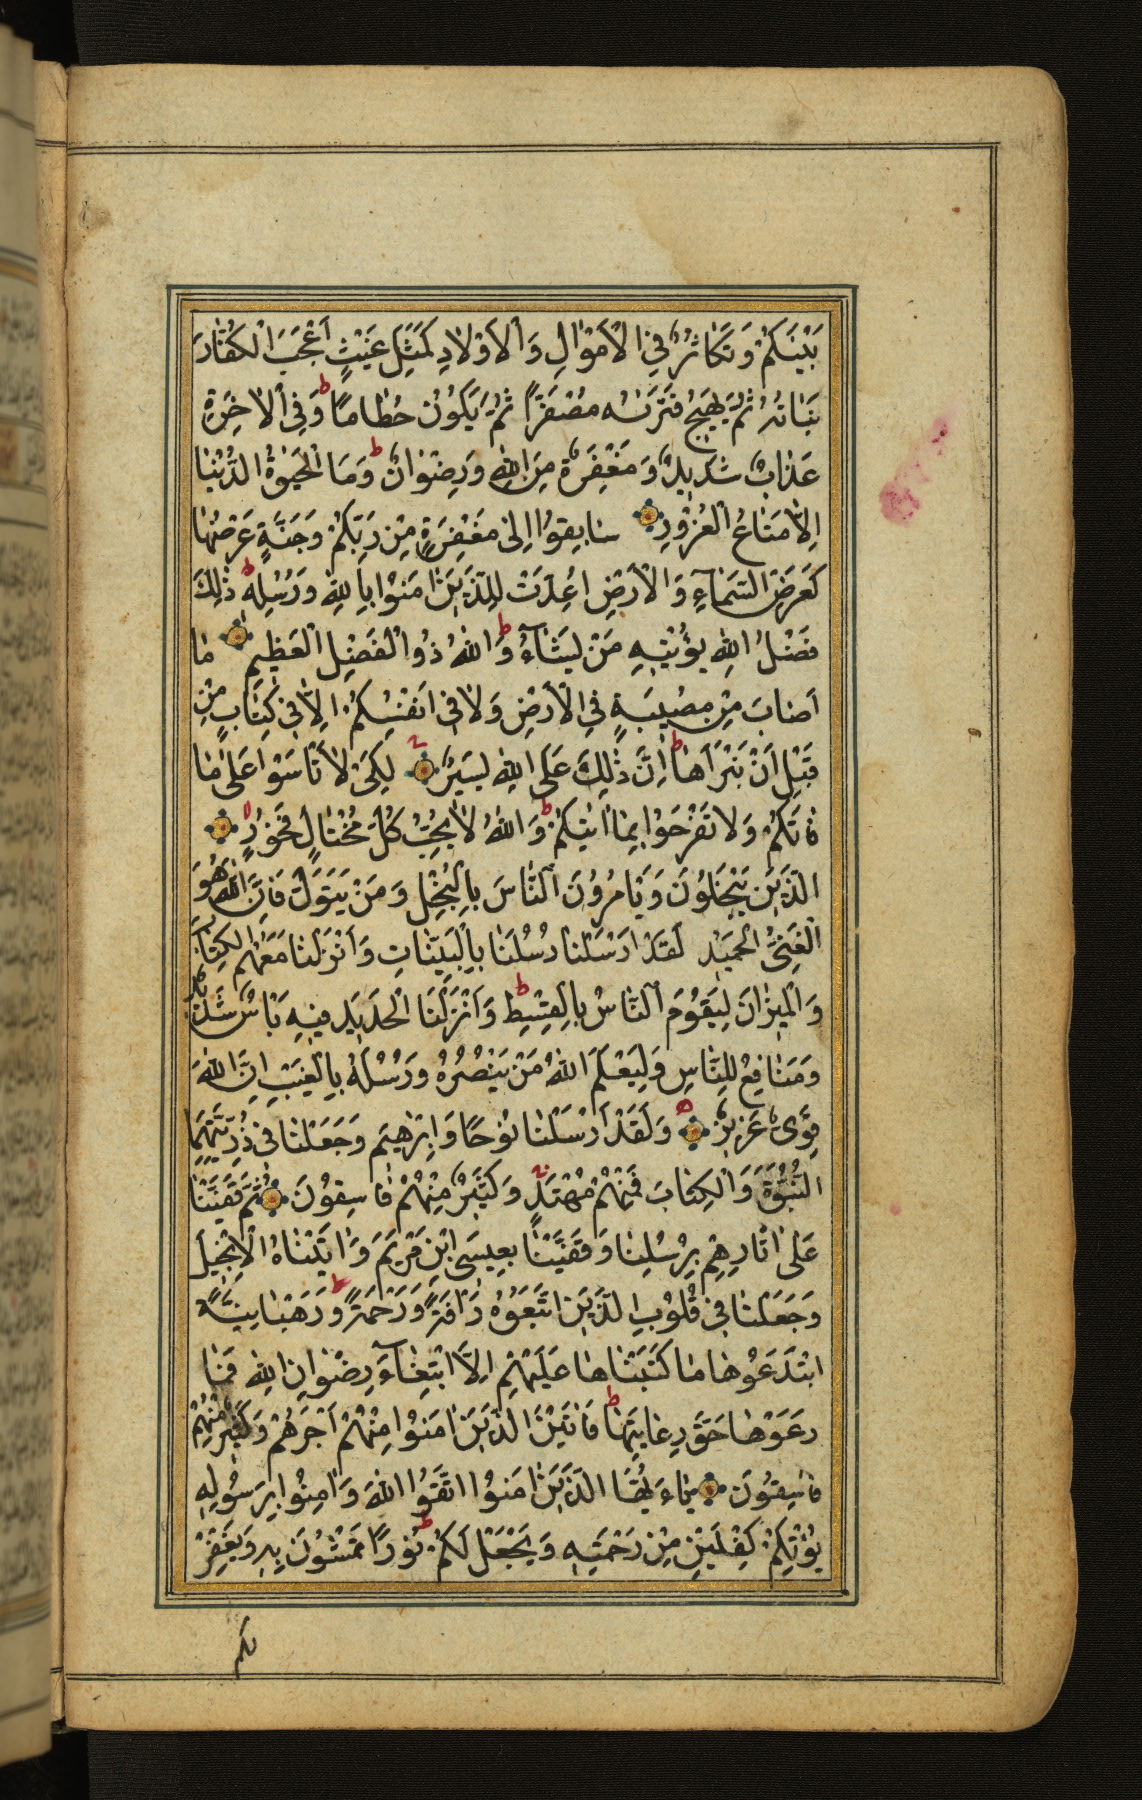 بَيْنَكُمْ وَتَكَاثُرٌ فِي الْاَمْوَالِ وَالْاَوْلَادِ كَمَثَلِ غَيْثٍ اَعْجَبَ الْكُفَّارَ
نَبَاتُهُ ثُمَّ يَهِيجُ فَتَرَيٰهُ مُصْفَرًّا ثُمَّ يَكُونُ حُطَامًا ط وَفِي الْاٰخِرَةِ
عَذَابٌ شَدِيدٌ وَمَغْفِرَةٌ مِنَ اللهِ وَرِضْوَانٌ ط وَمَا الْحَيٰوةُ الدُّنْيَا
اِلَّا مَتَاعُ الْغُرُورِ سَابِقُوا اِلٰى مَغْفِرَةٍ مِنْ رَبِّكُمْ وَجَنَّةٍ عَرْضُهَا
كَعَرْضِ السَّمَآءِ وَالْاَرْضِ اُعِدَّتْ لِلَّذِينَ اٰمَنُوا بِاللهِ وَرُسُلِهِ ط ذٰلِكَ
فَضْلُ اللهِ يُؤْتِيهِ مَنْ يَشَآءُ ط وَاللهُ ذُو الْفَضْلِ الْعَظِيمِ مَا
اَصَابَ مِنْ مُصِيبَةٍ فِي الْاَرْضِ وَلَا فِي اَنْفُسِكُمْ اِلَّا فِي كِتَابٍ مِنْ
قَبْلِ اَنْ نَبْرَاَهَا ط اِنَّ ذٰلِكَ عَلَى اللهِ يَسِيرٌ لِكَيْ لَا تَاْسَوْا عَلٰى مَا
فَاتَكُمْ وَلَا تَفْرَحُوا بِمَا اٰتٰيكُمْ ط وَاللهُ لَا يُحِبُّ كُلَّ مُخْتَالٍ فَخُورٍ لا
الَّذِينَ يَبْخَلُونَ وَيَاْمُرُونَ النَّاسَ بِالْبُخْلِ وَمَنْ يَتَوَلَّ فَاِنَّ اللهَ هُوَ
الْغَنِيُّ الْحَمِيدُ لَقَدْ اَرْسَلْنَا رُسُلَنَا بِالْبَيِّنَاتِ وَاَنْزَلْنَا مَعَهُمُ الْكِتَابَ
وَالْمِيزَانَ لِيَقُومَ النَّاسُ بِالْقِسْطِ ط وَاَنْزَلْنَا الْحَدِيدَ فِيهِ بَاْسٌ شَدِيدٌ
وَمَنَافِعُ لِلنَّاسِ وَلِيَعْلَمَ اللهُ مَنْ يَنْصُرُهُ وَرُسُلَهُ بِالْغَيْبِ اِنَّ اللهَ
قَوِيٌّ عَزِيزٌ وَلَقَدْ اَرْسَلْنَا نُوحًا وَاِبْرٰهِيمَ وَجَعَلْنَا فِي ذُرِّيَّتِهِمَا
النُّبُوَّةَ وَالْكِتَابَ فَمِنْهُمْ مُهْتَدٍ وَكَثِيرٌ مِنْهُمْ فَاسِقُونَ ثُمَّ قَفَّيْنَا
عَلٰى اٰثَارِهِمْ بِرُسُلِنَا وَقَفَّيْنَا بِعِيسَى ابْنِ مَرْيَمَ وَاٰتَيْنَاهُ الْاِنْجِيلَ
وَجَعَلْنَا فِي قُلُوبِ الَّذِينَ اتَّبَعُوهُ رَاْفَةً وَرَحْمَةً ط وَرَهْبَانِيَّةً
ابْتَدَعُوهَا مَا كَتَبْنَاهَا عَلَيْهِمْ اِلَّا ابْتِغَآءَ رِضْوَانِ اللهِ فَمَا
رَعَوْهَا حَقَّ رِعَايَتِهَا ط فَاٰتَيْنَا الَّذِينَ اٰمَنُوا مِنْهُمْ اَجْرَهُمْ وَكَثِيرٌ مِنْهُمْ
فَاسِقُونَ يَآءَيُّهَا الَّذِينَ اٰمَنُوا اتَّقُوا اللهَ وَاٰمِنُوا بِرَسُولِهِ
يُؤْتِكُمْ كِفْلَيْنِ مِنْ رَحْمَتِهِ وَيَجْعَلْ لَكُمْ نُورًا تَمْشُونَ بِهِ وَيَغْفِرْ
لكم